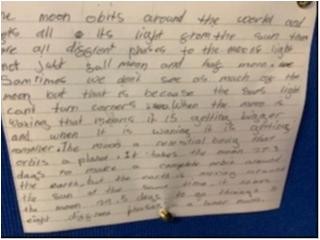 e moon orbits around the world and
ts all o its light from the sun there
are all diffrent phases to the moons light
not just full moon and half moon. we
Sometimes we don't see as much of the
moon but that is because the suns light
cant turn corners. When the moon is
waxing that means it is getting bigger
and when it is waning it is getting
smaller. The moon a celestial being that
orbits a planet. It takes the moon 27.3
days to make a complete orbit around
the earth, but the earth is moving around
the sun at the same time, it means
the moon 29.5 days to go through a
eight diffrent phases a lunar month.